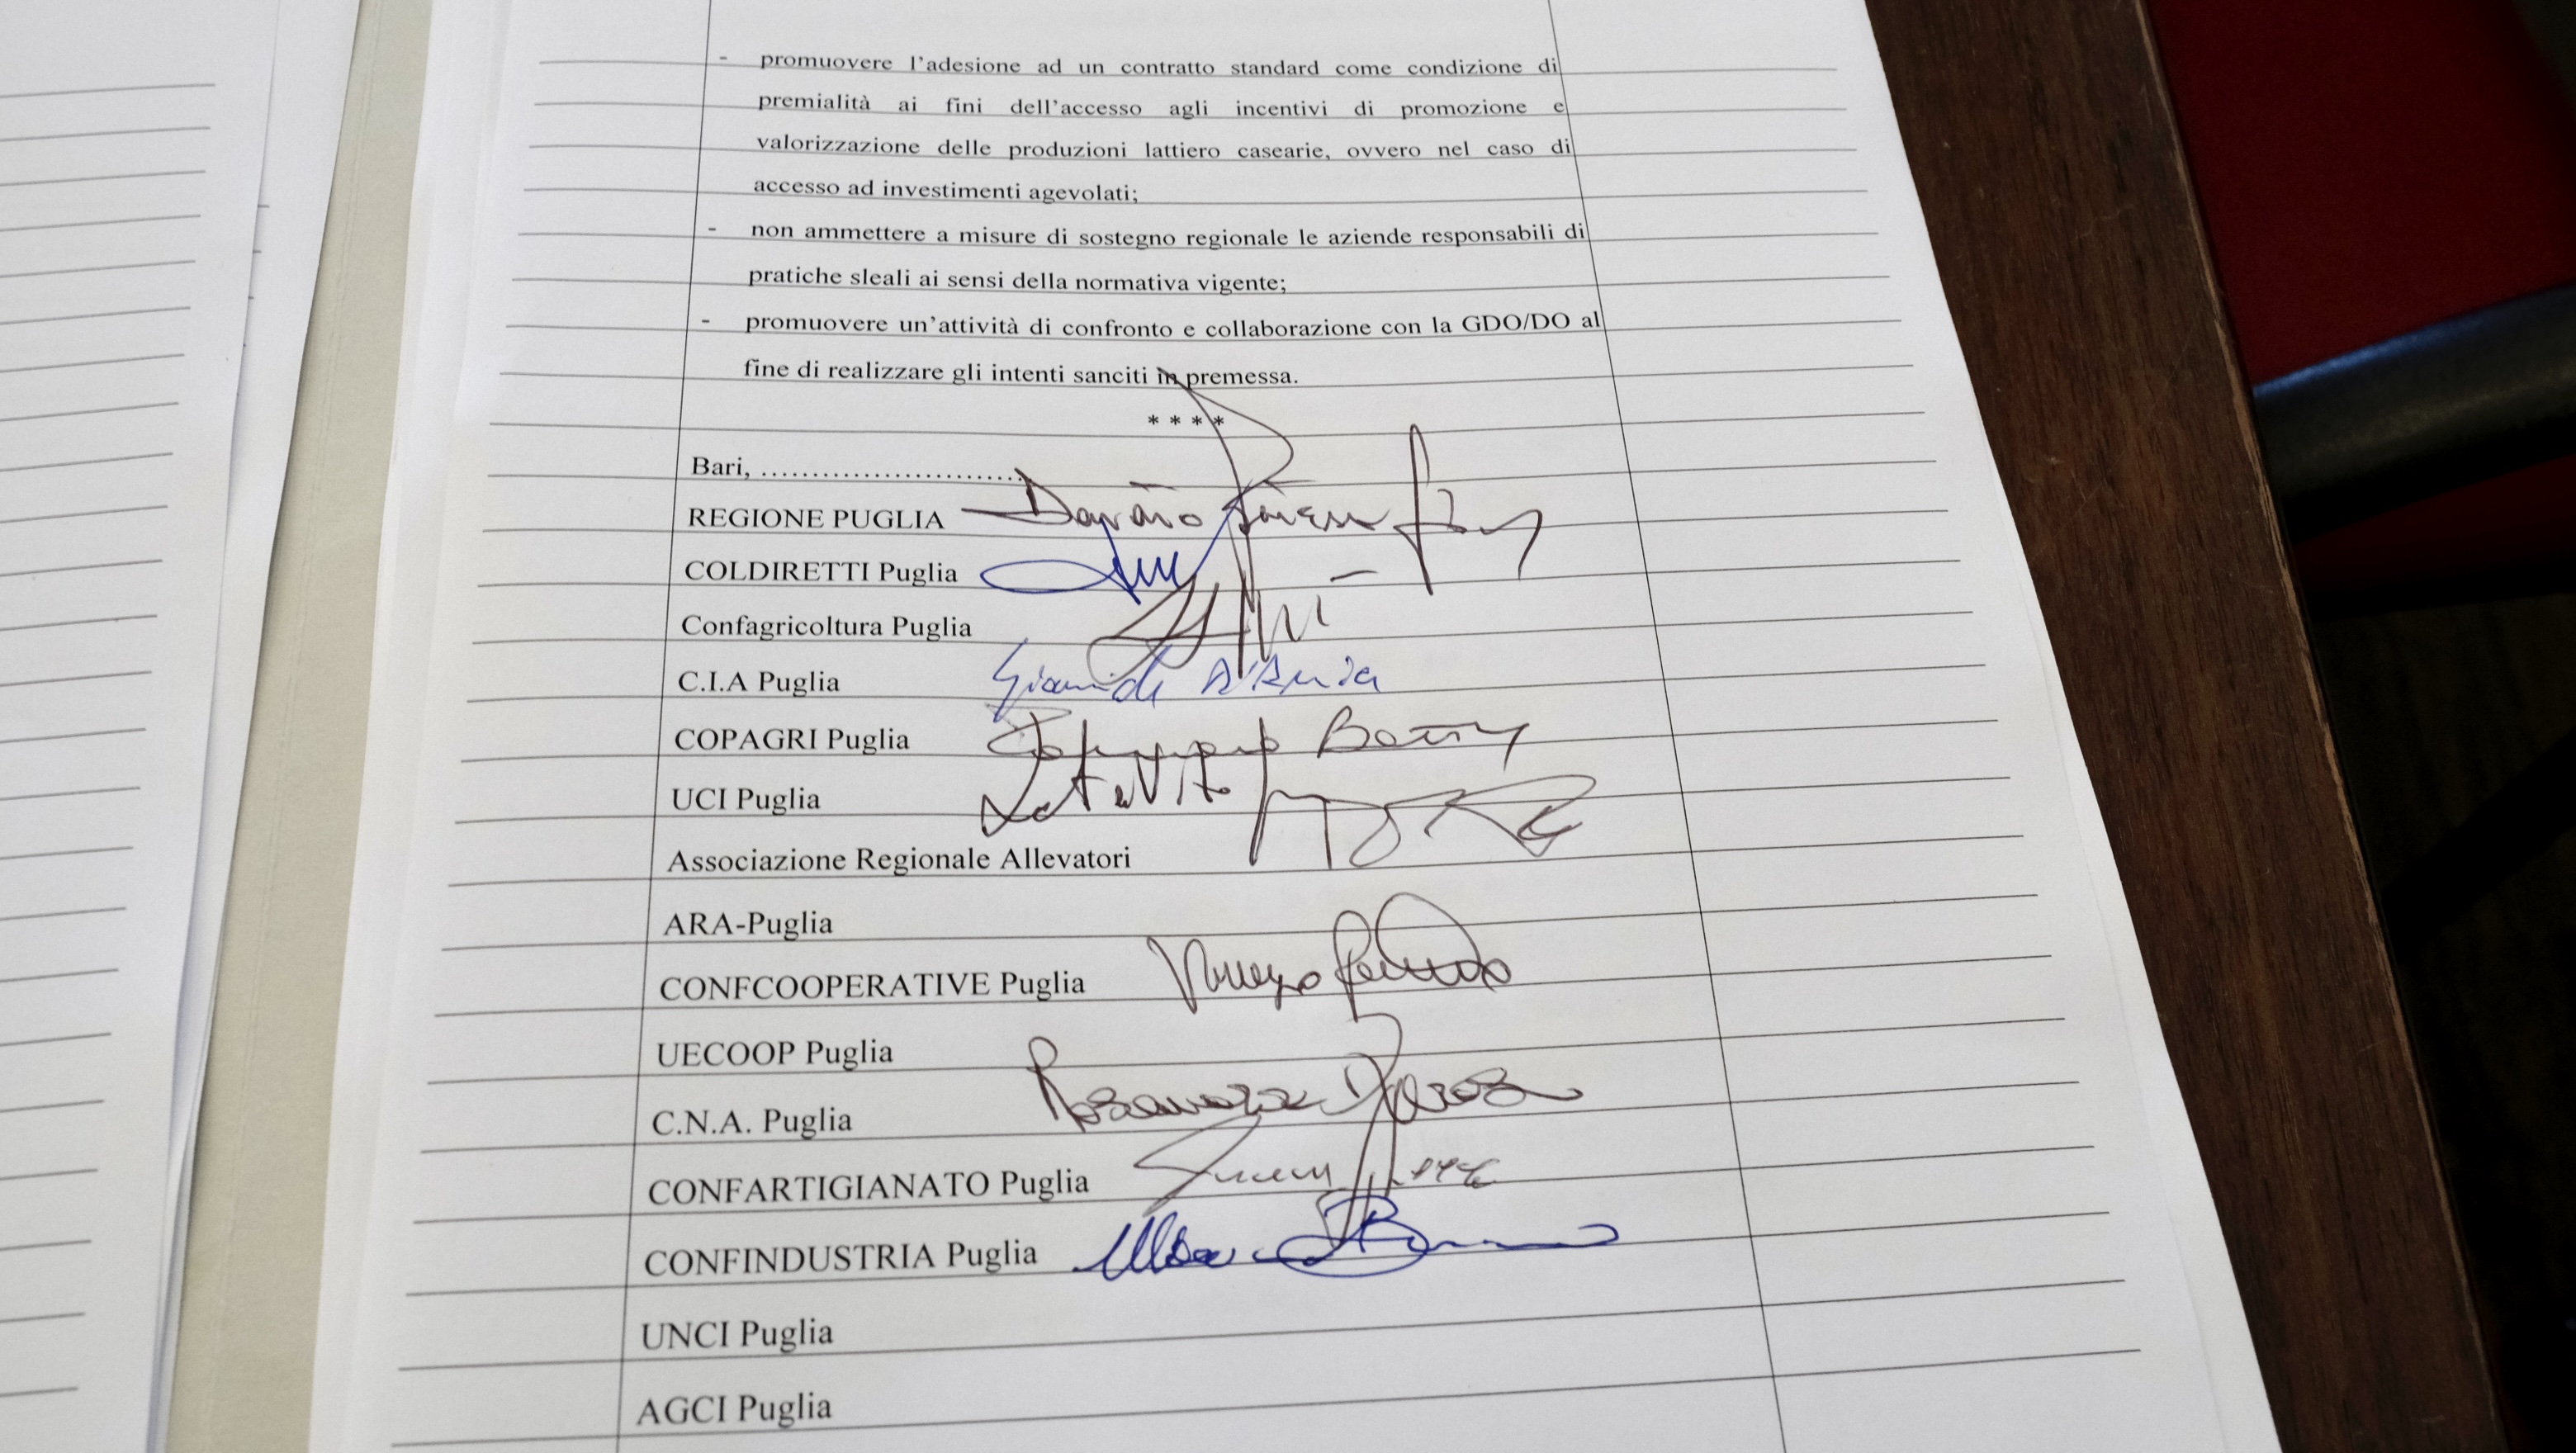 - promuovere l'adesione ad un contratto standard come condizione di
premialità ai fini dell'accesso agli incentivi di promozione e
valorizzazione delle produzioni lattiero casearie, ovvero nel caso di
accesso ad investimenti agevolati;
- non ammettere a misure di sostegno regionale le aziende responsabili di
pratiche sleali ai sensi della normativa vigente;
- promuovere un'attività di confronto e collaborazione con la GDO/DO al
fine di realizzare gli intenti sanciti in premessa.
* * * *
Bari, ..........................
REGIONE PUGLIA
COLDIRETTI Puglia
Confagricoltura Puglia
C.I.A Puglia
COPAGRI Puglia
UCI Puglia
Associazione Regionale Allevatori
ARA-Puglia
CONFCOOPERATIVE Puglia
UECOOP Puglia
C.N.A. Puglia
CONFARTIGIANATO Puglia
CONFINDUSTRIA Puglia
UNCI Puglia
AGCI Puglia